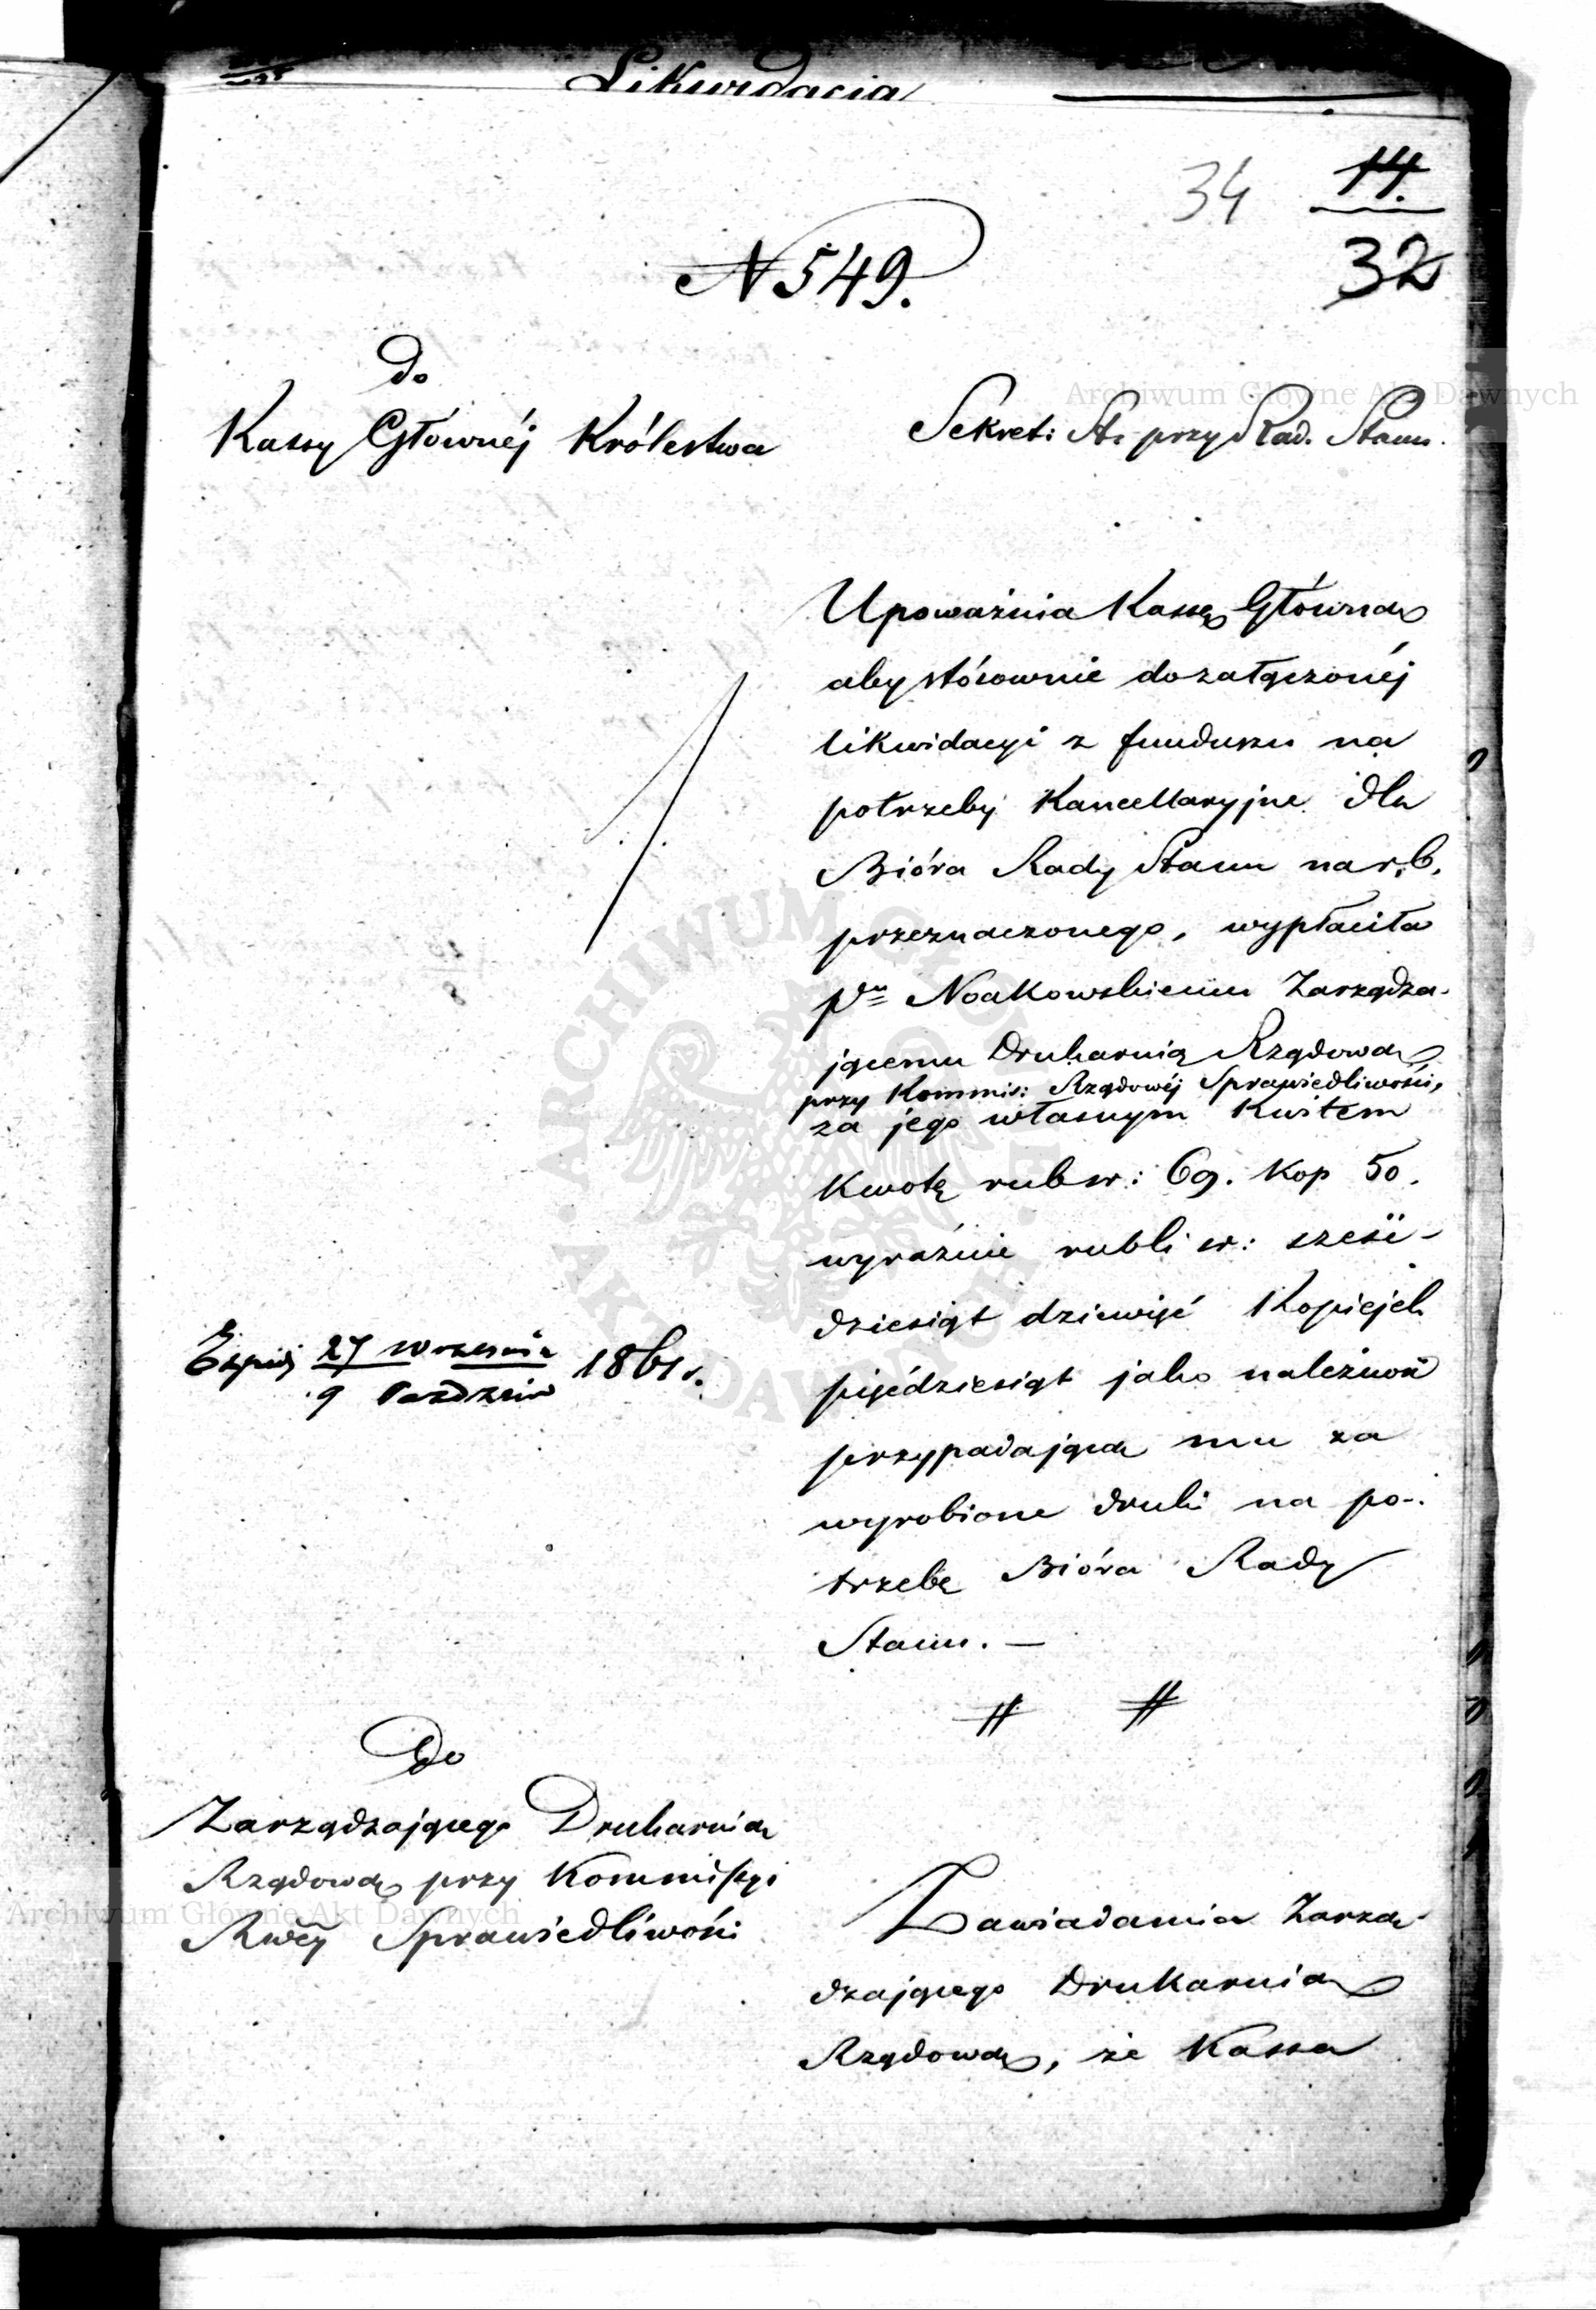 Likwidacia
34
14.
32
N 549.
Do
Kassy Głównéj Królestwa
Sekret: St: przy Rad. Stanu.
Upoważnia Kassę Główną
aby stósownie do załączonéj
likwidacyi z funduszu na
potrzeby Kancellaryjne dla
Bióra Rady Stanu na r. b.
przeznaczonego, wypłaciła
Pnu Noakowskiemu Zarządza-
jącemu Drukarnią Rządową
przy Kommis: Rządowéj Sprawiedliwości,
za jego własnym Kwitem
Kwotę rub sr: 69. Kop 50.
wyraźnie rubli sr: sześć-
dziesiąt dziewięć Kopiejek
pięćdziesiąt jako należność
przypadającą mu za
wyrobione druki na po-
trzebę Bióra Rady
Stanu. —
27 Września
9 Paździer 1861 r.
Do
Zarządzającego Drukarnią
Rządową przy Kommissyi
Rwéy Sprawiedliwości
Zawiadamia Zarzą-
dzającego Drukarnią
Rządową, że Kassa
Archiwum Główne Akt Dawnych
Archiwum Główne Akt Dawnych
ARCHIWUM GŁÓWNE AKT DAWNYCH